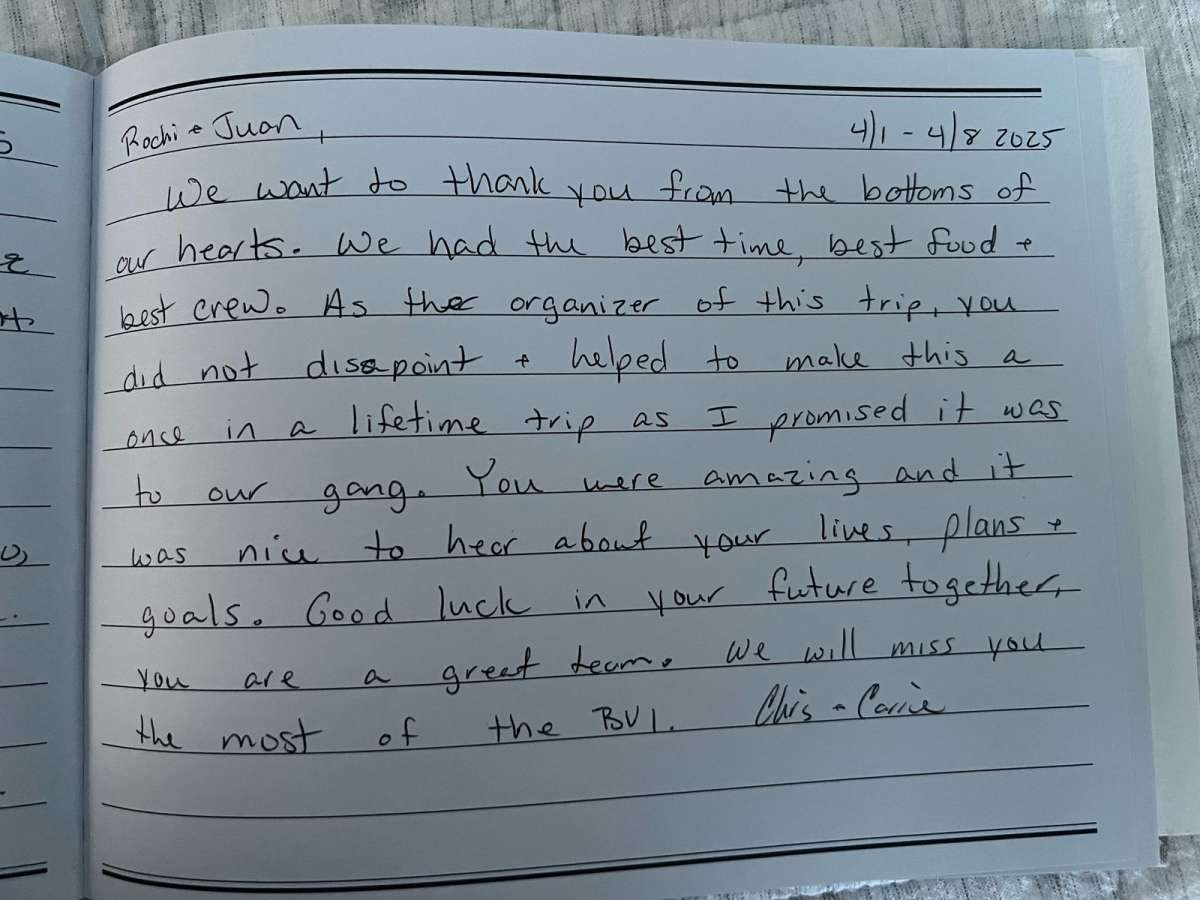 Rochi + Juan, 4/1 - 4/8 2025
We want to thank you from the bottoms of
our hearts. We had the best time, best food +
best crew. As the organizer of this trip, you
did not disapoint + helped to make this a
once in a lifetime trip as I promised it was
to our gang. You were amazing and it
was nice to hear about your lives, plans +
goals. Good luck in your future together,
you are a great team. We will miss you
the most of the BVI. Chis + Carrie